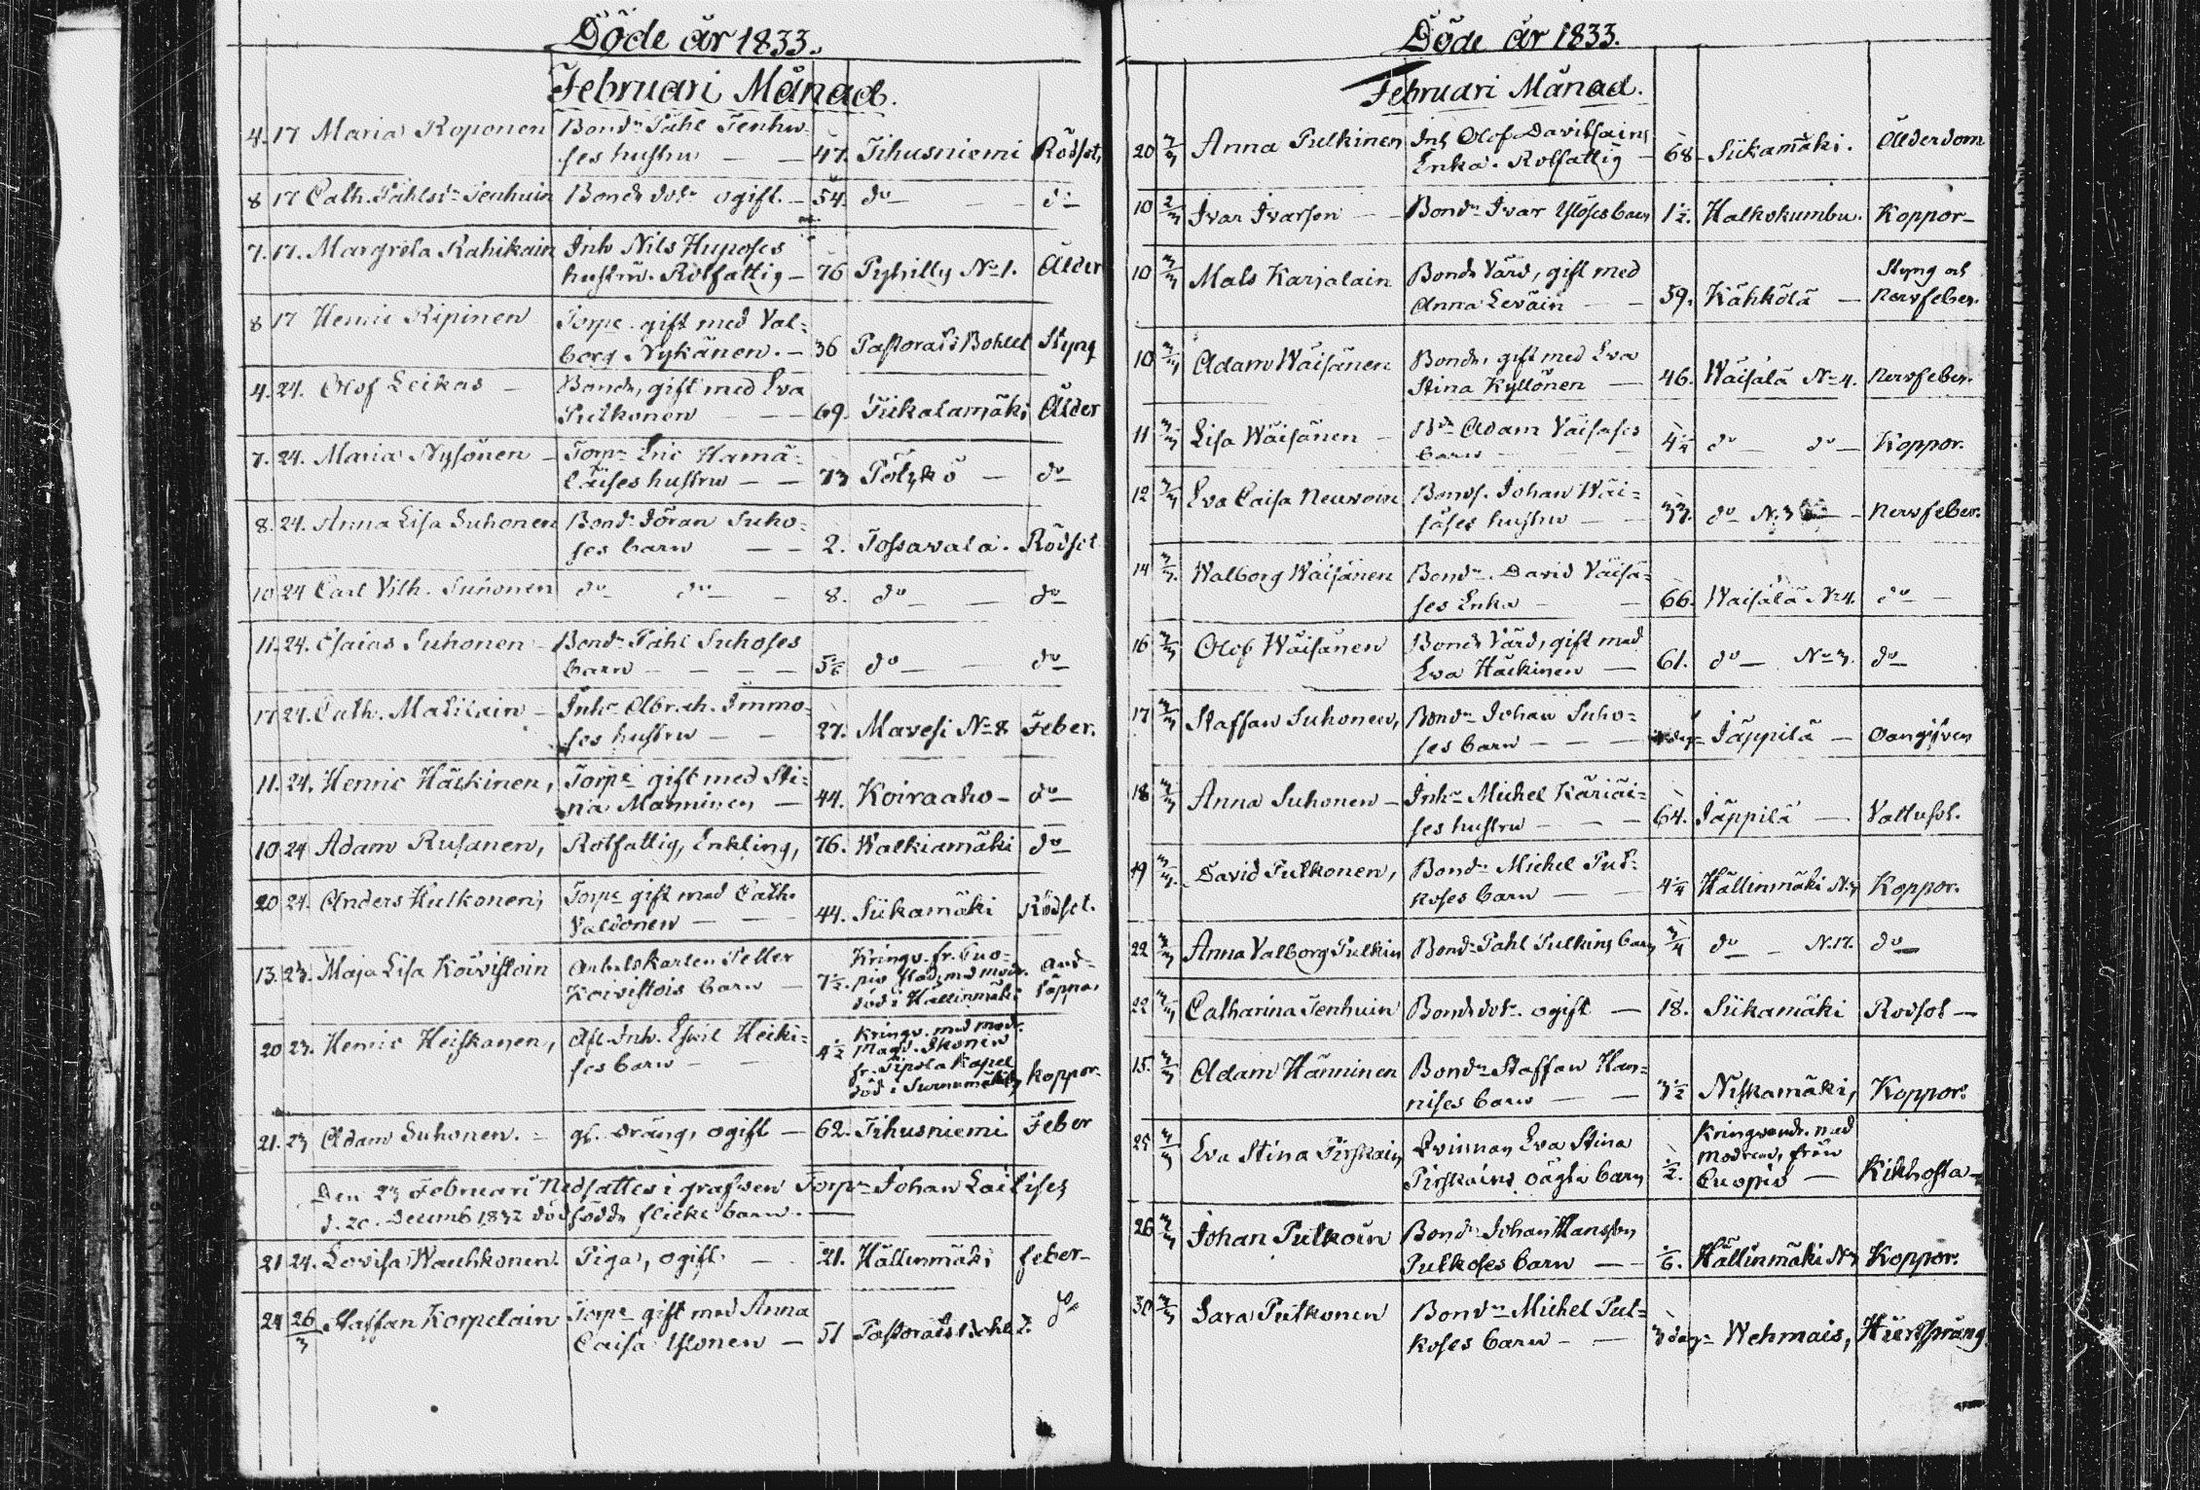 Döde år 1833.
Februari Månad.
4. 17 Maria Roponen Bondn Påhl Tenhu-
ses hustru — — 47. Tihusniemi Rödsot,
8 17 Cath. Påhlsdr Tenhuin Bonde dotr ogift. — 54. do — — do
7. 17. Margreta Rahikain Inh Nils Huposes
hustru. Rotfattig — 76 Pyhilly No 1. Ålder
8 17 Henric Ripinen Torpe. gift med Val-
borg Nykänen. — 36 Pastorats Bohlet Styng
4. 24. Olof Leikas — Bonde, gift med Eva
Pulkonen — — 69. Tiikalamäki Ålder
7. 24. Maria Nysönen — Torpn Eric Hämä-
läises hustru — — 73 Pölykö — do
8. 24. Anna Lisa Suhonen Bondn Jöran Suho-
ses barn — — 2. Tossavala. Rödsot
10 24 Carl Vilh. Suhonen do do — 8. do — — do
11. 24. Esaias Suhonen — Bondn Påhl Suhoses
barn — — — 5 1/6 do — — do
17 24. Cath. Matilain — Inhs Abrah. Immo-
ses hustru — — 27. Mavesi No 8 Feber.
11. 24. Henric Häckinen, Torpe gift med Sti-
na Manninen — 44. Koiraaho — do
10 24 Adam Rusanen, Rotfattig, Enkling, 76. Walkiamäki do
20 24. Anders Hulkonen, Torpe gift med Cath.
Valdonen — — 44. Siikamäki Rödsot.
13. 23. Maja Lisa Koivistoin Arbetskarlen Petter
Koivistois barn — 7 1/2. Kringv. fr. Cuo-
pio stad, md modr.
död i Hällinmäki And-
täppa,
20 23. Henric Heiskanen, Afl. Inh. Eskil Heiki-
ses barn — 4 1/2 Kringv. med modr.
Magd. Ikonen
fr. Pipola Kapel
död i Surnumäki, koppor.
21. 23 Adam Suhonen. — gl. dräng, ogift — 62. Tihusniemi Feber
Den 23 Februari nedsattes i grafven Torpn Johan Laitises
d. 20. Decemb 1832 dödfödda flicke barn. —
21 24. Lovisa Wauhkonen. Piga, ogift — 21. Hällinmäki feber —
24 26/3 Staffan Korpelain Torpe gift med Anna
Caisa Ylönen — 51 Pastorats Bohlt. do
Döde år 1833.
Februari Månad.
20 3/3 Anna Pulkinen Inh Olof Davidsains
Enka. Rotfattig — 68. Siikamäki. Ålderdom
10 2/3 Ivar Ivarson — Bondn Ivar Ylöses barn 1 1/2. Halkokumbu. Koppor —
10 3/3 Mats Karjalain Bonde Värd, gift med
Anna Leväin — — 59. Kähkölä — Styng och
nervfeber.
10 3/3 Adam Wäisänen Bonde, gift med Eva
Stina Kyllönen — 46. Wäisälä No 4. Nervfeber.
11 3/3 Lisa Wäisänen — Bdn Adam Väisäses
barn — — 4 1/2 do — do — Koppor.
12 3/3 Eva Caisa Neuvoin Bonds. Johan Wäi-
säses hustru — — 33. do No 3 — Nervfeber.
14 3/3 Walborg Wäisänen Bondn. David Väisä-
ses Enka — — 66. Waisälä No 4. do —
16 3/3 Olof Wäisänen Bonde Värd, gift med
Eva Häckinen — 61. do — No 3. do —
17 3/3 Staffan Suhonen, Bondn Johan Suho-
ses barn — — — Jäppilä — Oangifven
18 3/3 Anna Suhonen — Inhs Michel Käriäi-
ses hustru — — — 64. Jäppilä — Vattusot.
19 3/3 David Pulkonen, Bondn Michel Pul-
koses barn — — 4 1/4 Hällinmäki No 3 Koppor.
22 3/3 Anna Valborg Pulkin Bondn Påhl Pulkins barn 3/4 do — No 17. do —
22 3/3 Catharina Tenhuin Bonde dotr. ogift — 18. Siikamäki Rodsot —
15. 3/3 Adam Hänninen Bondn Staffan Hän-
nises barn — — 3 1/2 Niskamäki, Koppor.
25 3/3 Eva Stina Pirskain Qvinnan Eva Stina
Pirskains oägta barn 1/2. Kringvandr. med
modren, från
Cuopio — Kikhosta —
26 3/3 Johan Pulkoin Bondn Johan Hansson
Pulkoses barn — — 1/6. Hällinmäki No 3 Koppor.
30 3/3 Sara Pulkonen Bondn Michel Pul-
koses barn — — 3 dagr Wehmais, Hiertsprång